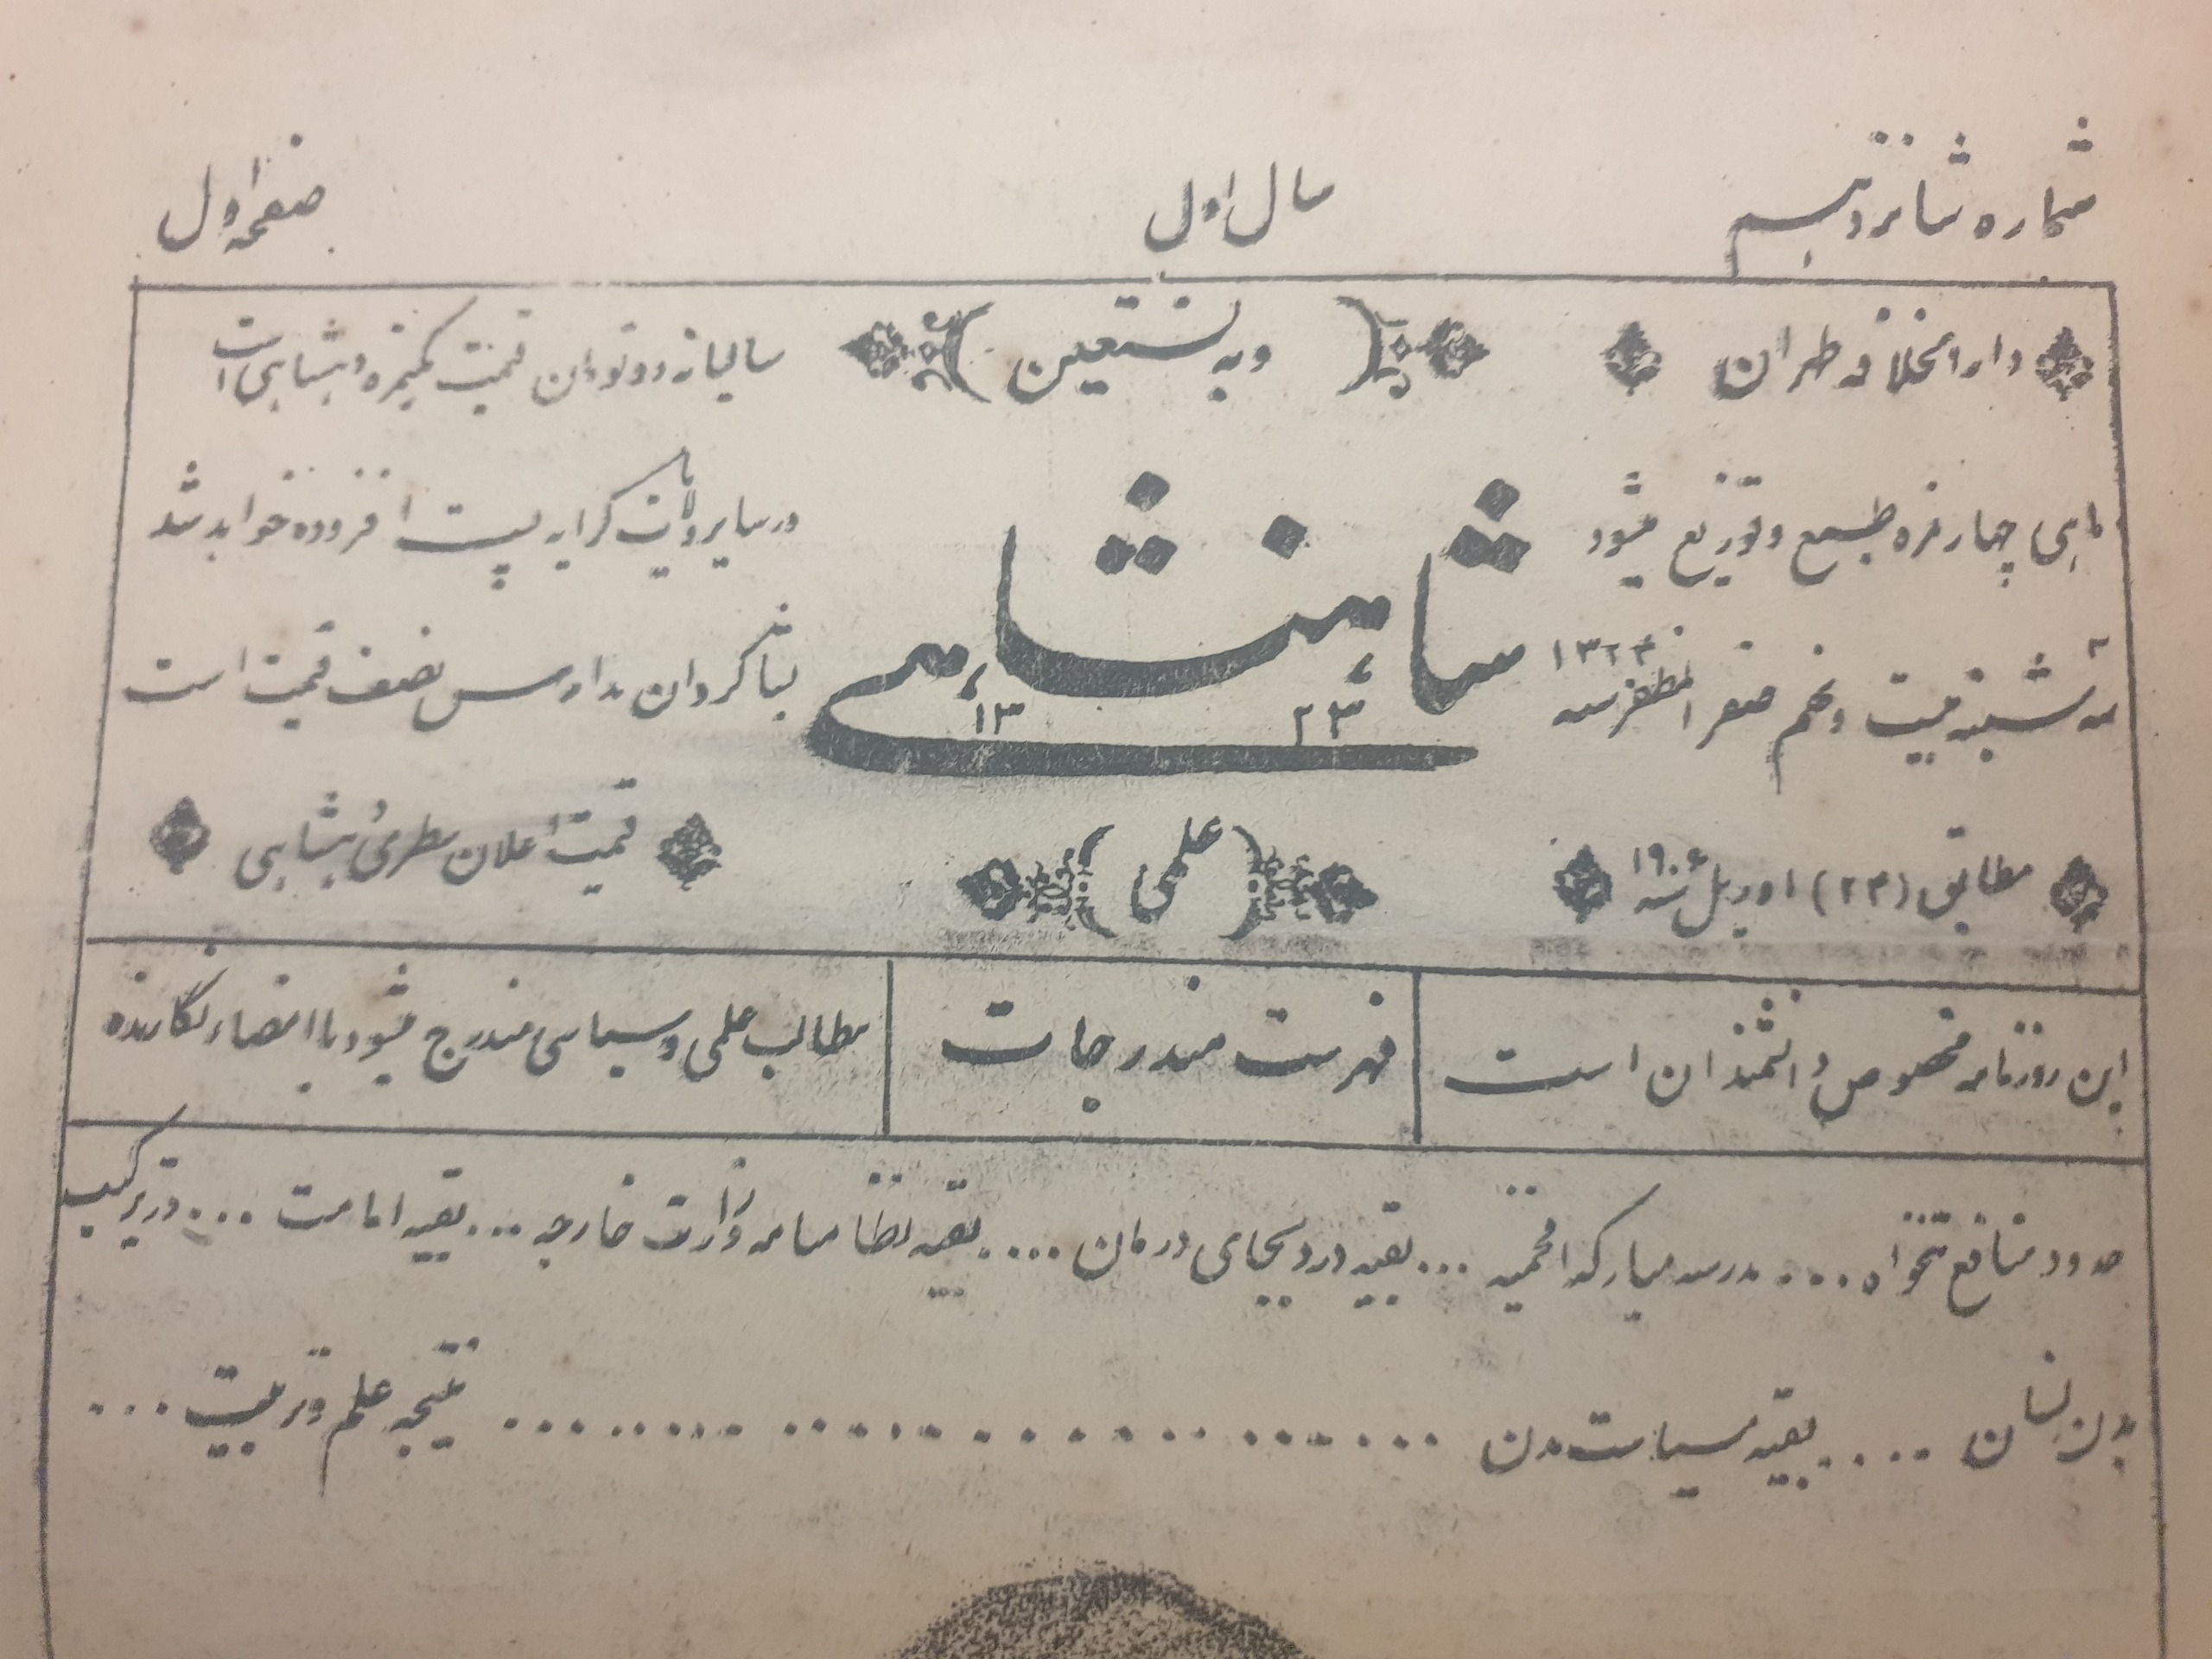 شماره شانزدهم
سال اول
صفحه اول
دارالخلافه طهران
ماهی چهار نمره طبع و توزیع میشود
سه شنبه بیست و نهم صفر المظفر سنه ۱۳۲۴
مطابق (۲۴) اوریل سنه ۱۹۰۶
( وبه نستعین )
شاهنشاهی
۱۳۲۳
( علمی )
سالیانه دو تومان قیمت یکنمره دهشاهی است
در سایر ولایات کرایه پست افزوده خواهد شد
بشاگردان مدارس نصف قیمت است
قیمت اعلان سطری دهشاهی
این روزنامه مخصوص دانشمندان است
فهرست مندرجات
مطالب علمی و سیاسی مندرج میشود با امضاء نگارنده
حدود منافع تنخواه .... مدرسه مبارکه افخمیه ... بقیه درد بیجای درمان .... بقیه نظامنامه وزارت خارجه ... بقیه امامت ... در ترکیب
بدن انسان .... بقیه سیاست مدن .................... نتیجه علم و تربیت ...